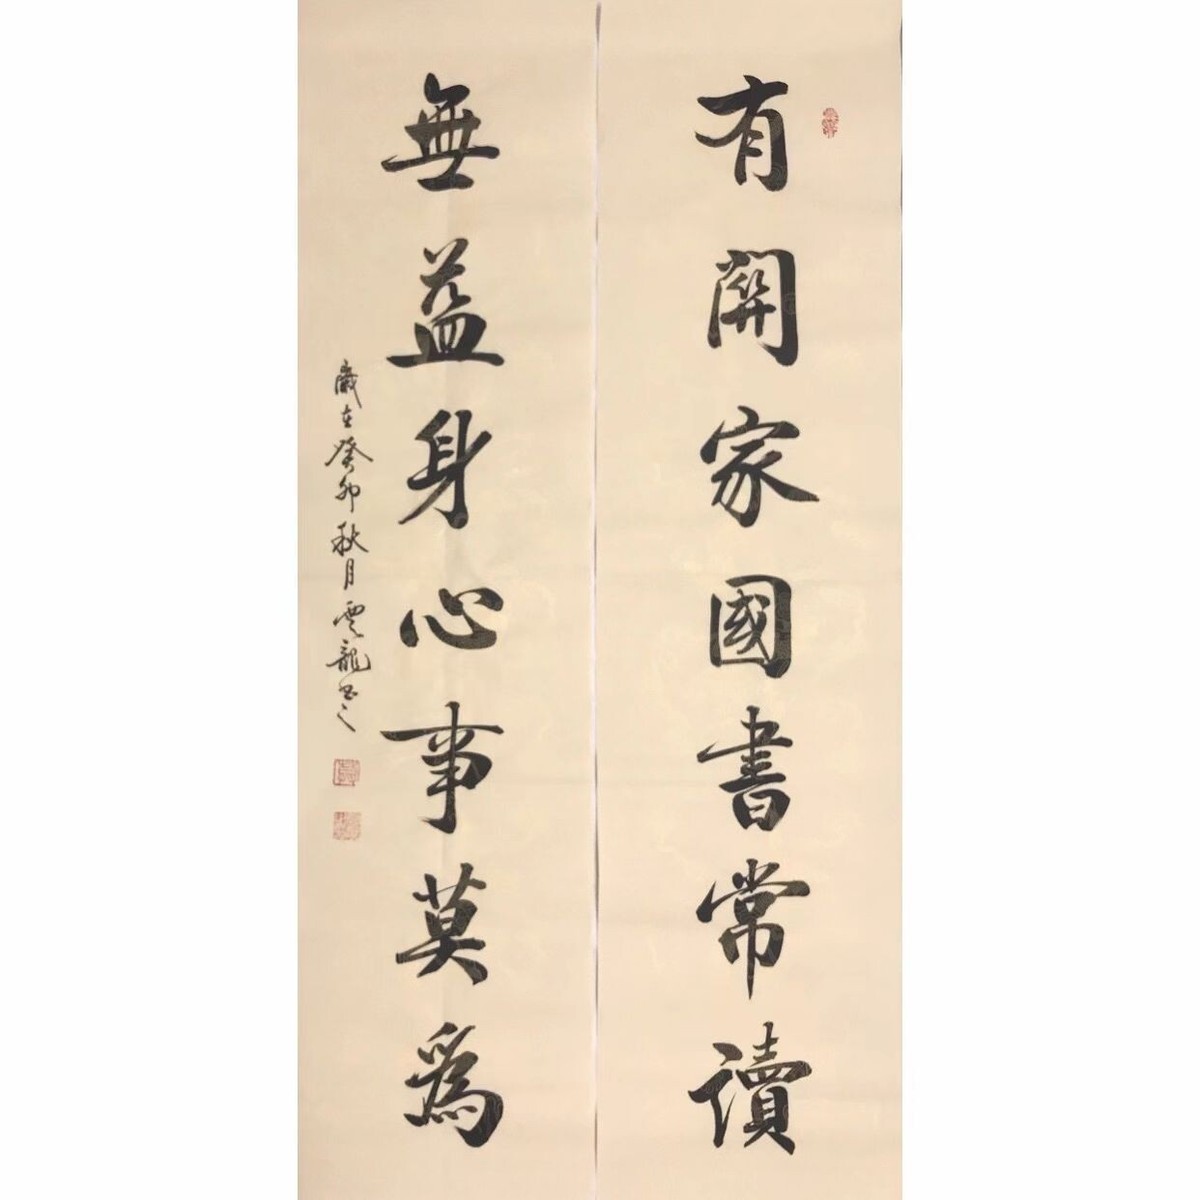 有關家國書常讀
無益身心事莫爲
歲在癸卯秋月雲龍書之